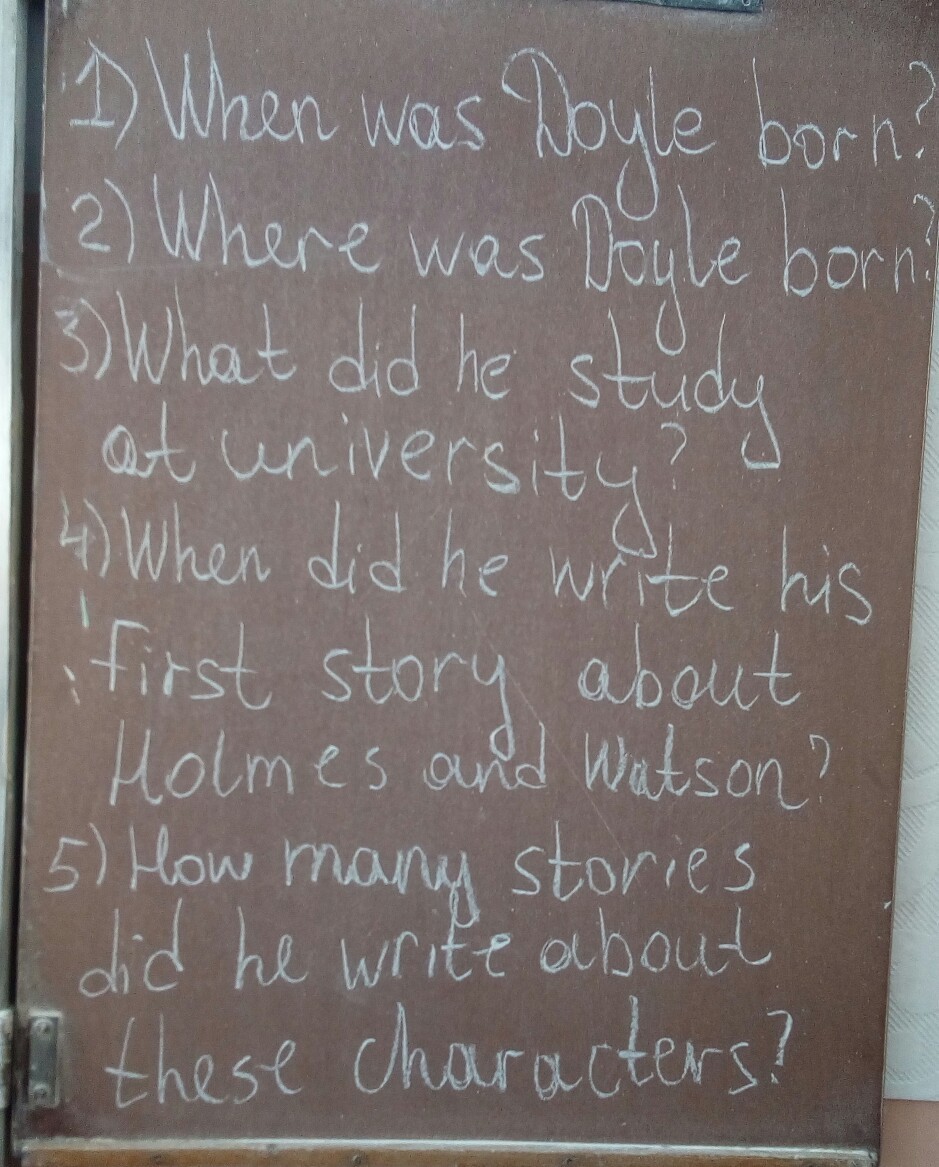 1) When was Doyle born?
2) Where was Doyle born?
3) What did he study
at university?
4) When did he write his
first story about
Holmes and Watson?
5) How many stories
did he write about
these characters?